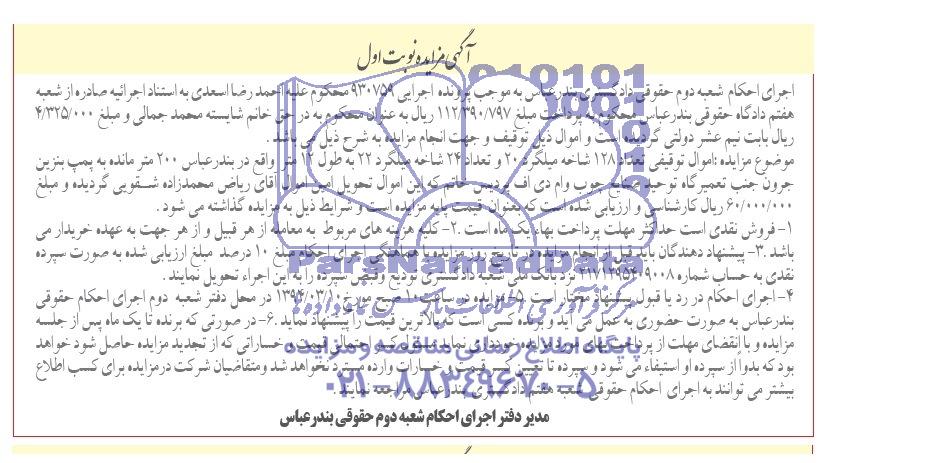 آگهی مزایده نوبت اول
اجرای احکام شعبه دوم حقوقی دادگستری بندرعباس به موجب پرونده اجرایی ۹۳۰۷۵۹ محکوم علیه احمد رضا اسعدی به استناد اجرائیه صادره از شعبه
هفتم دادگاه حقوقی بندرعباس محکوم به پرداخت مبلغ ۱۱۲/۳۹۰/۷۹۷ ریال به عنوان محکوم به در حق خانم شایسته محمد جمالی و مبلغ ۴/۳۲۵/۰۰۰
ریال بابت نیم عشر دولتی گردیده است و اموال ذیل توقیف و جهت انجام مزایده به شرح ذیل می باشد .
موضوع مزایده :اموال توقیفی تعداد ۱۲۸ شاخه میلگرد ۲۰ و تعداد ۲۴ شاخه میلگرد ۲۲ به طول ۱۲ متر واقع در بندرعباس ۲۰۰ متر مانده به پمپ بنزین
جرون جنب تعمیرگاه توحید صنایع چوب وام دی اف پردیس خاتم که این اموال تحویل امین اموال آقای ریاض محمدزاده شقویی گردیده و مبلغ
۶۰/۰۰۰/۰۰۰ ریال کارشناسی و ارزیابی شده است که بعنوان قیمت پایه مزایده است و شرایط ذیل به مزایده گذاشته می شود .
۱- فروش نقدی است حداکثر مهلت پرداخت بهاء یک ماه است .۲- کلیه هزینه های مربوط به معامله از هر قبیل و از هر جهت به عهده خریدار می
باشد .۳- پیشنهاد دهندگان باید قبل از انجام مزایده در تاریخ روز مزایده با هماهنگی اجرای احکام مبلغ ۱۰ درصد مبلغ ارزیابی شده به صورت سپرده
نقدی به حساب شماره ۲۱۷۱۲۹۵۴۰۹۰۰۸ نزد بانک ملی شعبه دادگستری تودیع و قبض سپرده را به این اجراء تحویل نمایند .
۴- اجرای احکام در رد یا قبول پیشنهاد مختار است .۵- مزایده در ساعت ۱۰ صبح مورخ ۱۳۹۴/۰۳/۱۰ در محل دفتر شعبه دوم اجرای احکام حقوقی
بندرعباس به صورت حضوری به عمل می آید و برنده کسی است که بالاترین قیمت را پیشنهاد نماید .۶- در صورتی که برنده تا یک ماه پس از جلسه
مزایده و با انقضای مهلت از پرداخت بهای مورد مزایده خودداری نماید مسئول کسر احتمالی قیمت و خساراتی که از تجدید مزایده حاصل شود خواهد
بود که بدواً از سپرده او استیفاء می شود و سپرده تا تعیین کسر قیمت و خسارات وارده مسترد نخواهد شد ومتقاضیان شرکت درمزایده برای کسب اطلاع
بیشتر می توانند به اجرای احکام حقوقی شعبه هفتم دادگستری بندرعباس مراجعه نمایند .
مدیر دفتر اجرای احکام شعبه دوم حقوقی بندرعباس
ParsNamadData
پایگاه اطلاع رسانی مناقصه و مزایده
۰۲۱-۸۸۳۴۹۶۷۰-۵